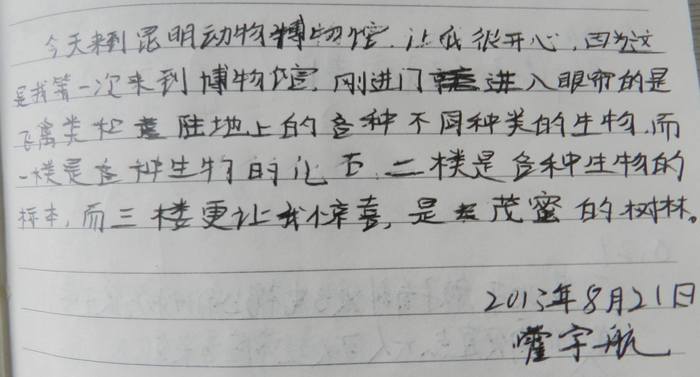 今天来到昆明动物博物馆,让我很开心,因为这
是我第一次来到博物馆,刚进门进入眼帘的是
飞禽类和陆地上的各种不同种类的生物,而
一楼是各种生物的化石,二楼是各种生物的
标本,而三楼更让我惊喜,是茂蜜的树林。
2013年8月21日
霍宇航